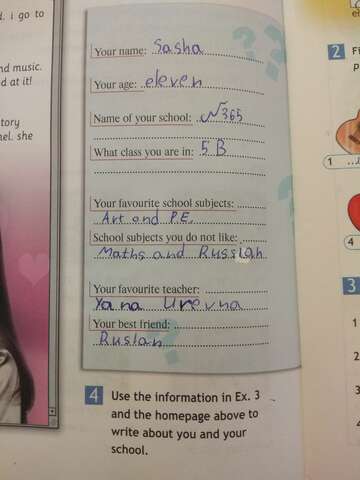 d. i go to
nd music.
d at it!
tory
nel. she
Your name: Sasha
Your age: eleven
Name of your school: №365
What class you are in: 5 B
Your favourite school subjects:
Art and P.E.
School subjects you do not like:
Maths and Russian
Your favourite teacher:
Yana Urevna
Your best friend:
Ruslan
4 Use the information in Ex. 3
and the homepage above to
write about you and your
school.
2 Fi
p
1
4
3
1
2
3
4